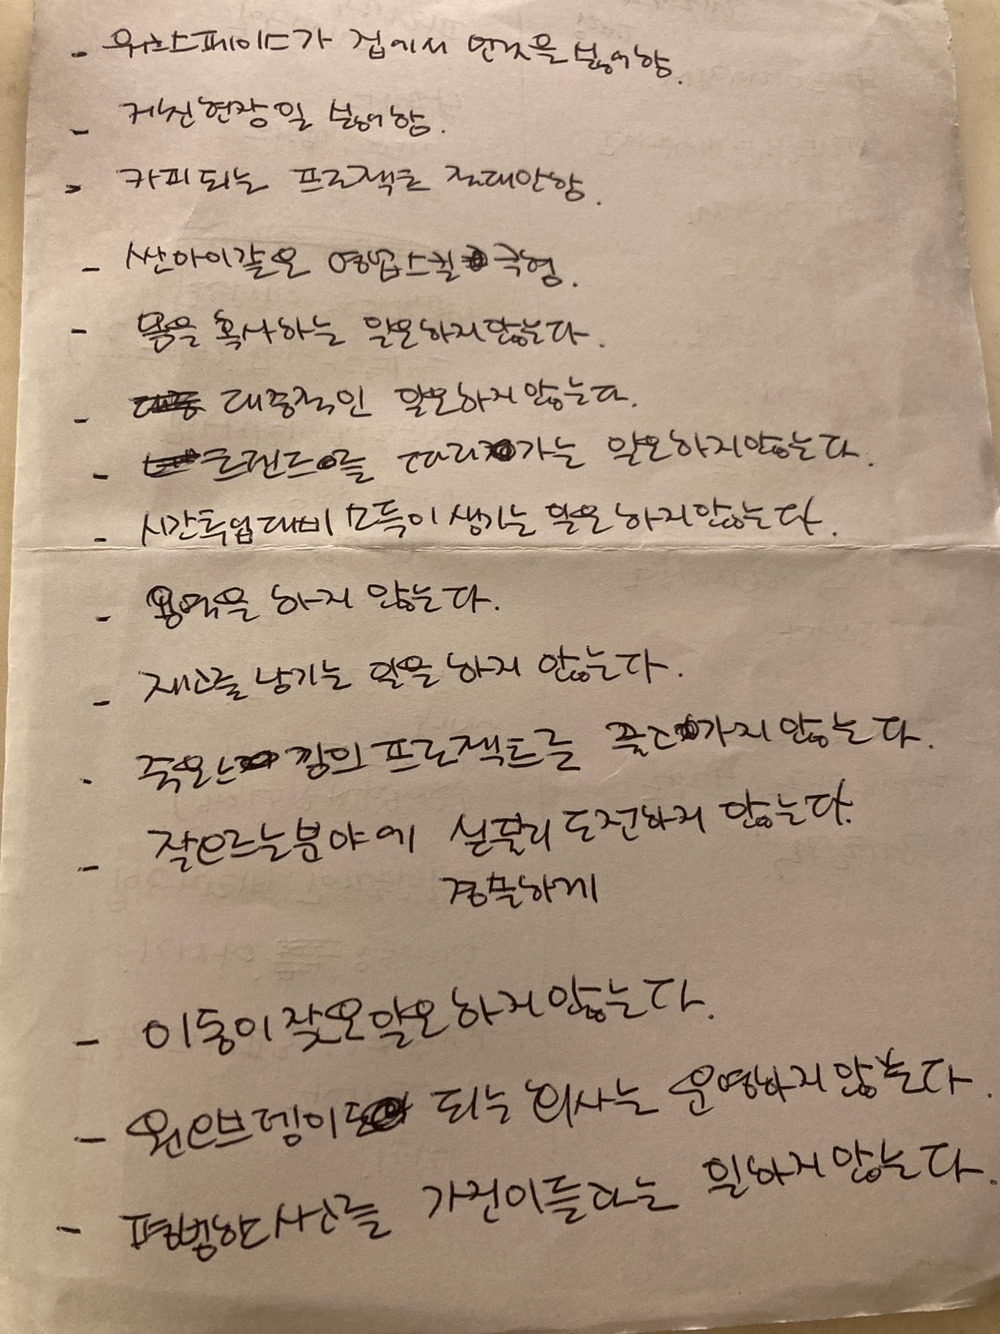 - 워크스페이스가 집에서 먼것을 싫어함.
- 거친현장일 싫어함.
- 카피되는 프로젝트 절대안함.
- 영업스킬 극혐.
- 몸을 혹사하는 일은하지않는다.
- 대중적인 일은하지않는다.
- 트렌드를 따라가는 일은하지않는다.
- 시간투입대비 소득이 생기는 일은 하지않는다.
- 용역은 하지 않는다.
- 재고를 남기는 일을 하지 않는다.
- 죽은 깡의 프로젝트를 끌고가지 않는다.
- 잘모르는분야에 섣불리 도전하지 않는다.
경솔하게
- 이동이잦은일은 하지않는다.
- 원맨브랜드 되는 회사는 운영하지않는다.
- 평범한사고를 가진이들과는 일하지않는다.